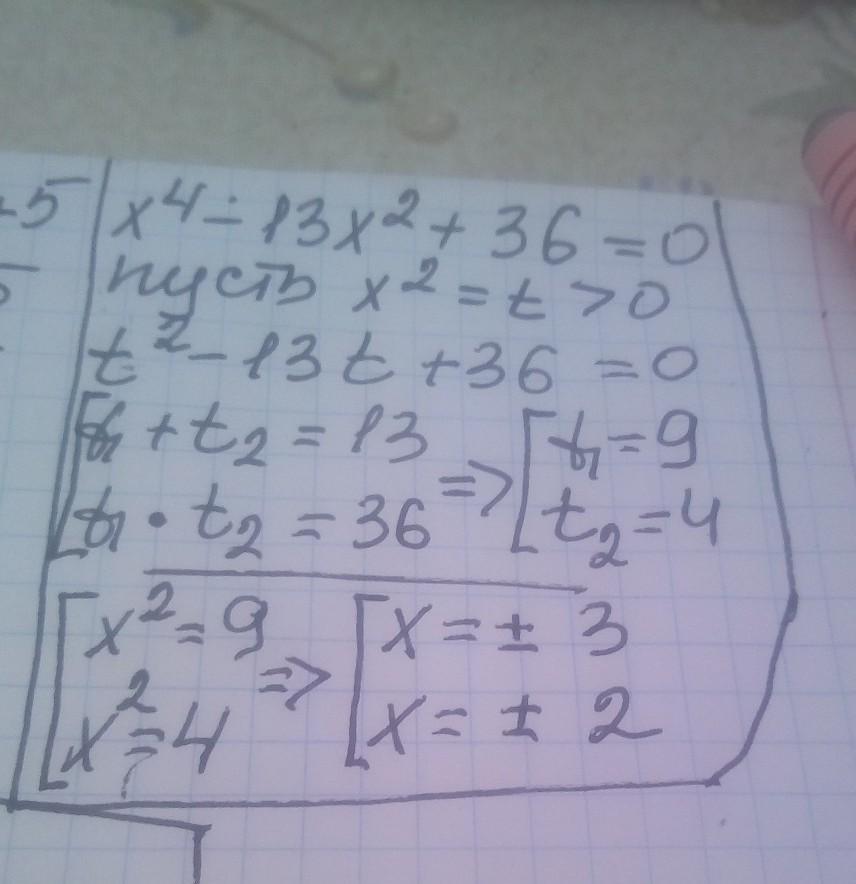 -5
x⁴ - 13x² + 36 = 0
пусть x² = t > 0
t² - 13t + 36 = 0
[t₁ + t₂ = 13
[t₁ · t₂ = 36
=> [t₁ = 9
[t₂ = 4
[x² = 9
[x² = 4
=> [x = ± 3
[x = ± 2